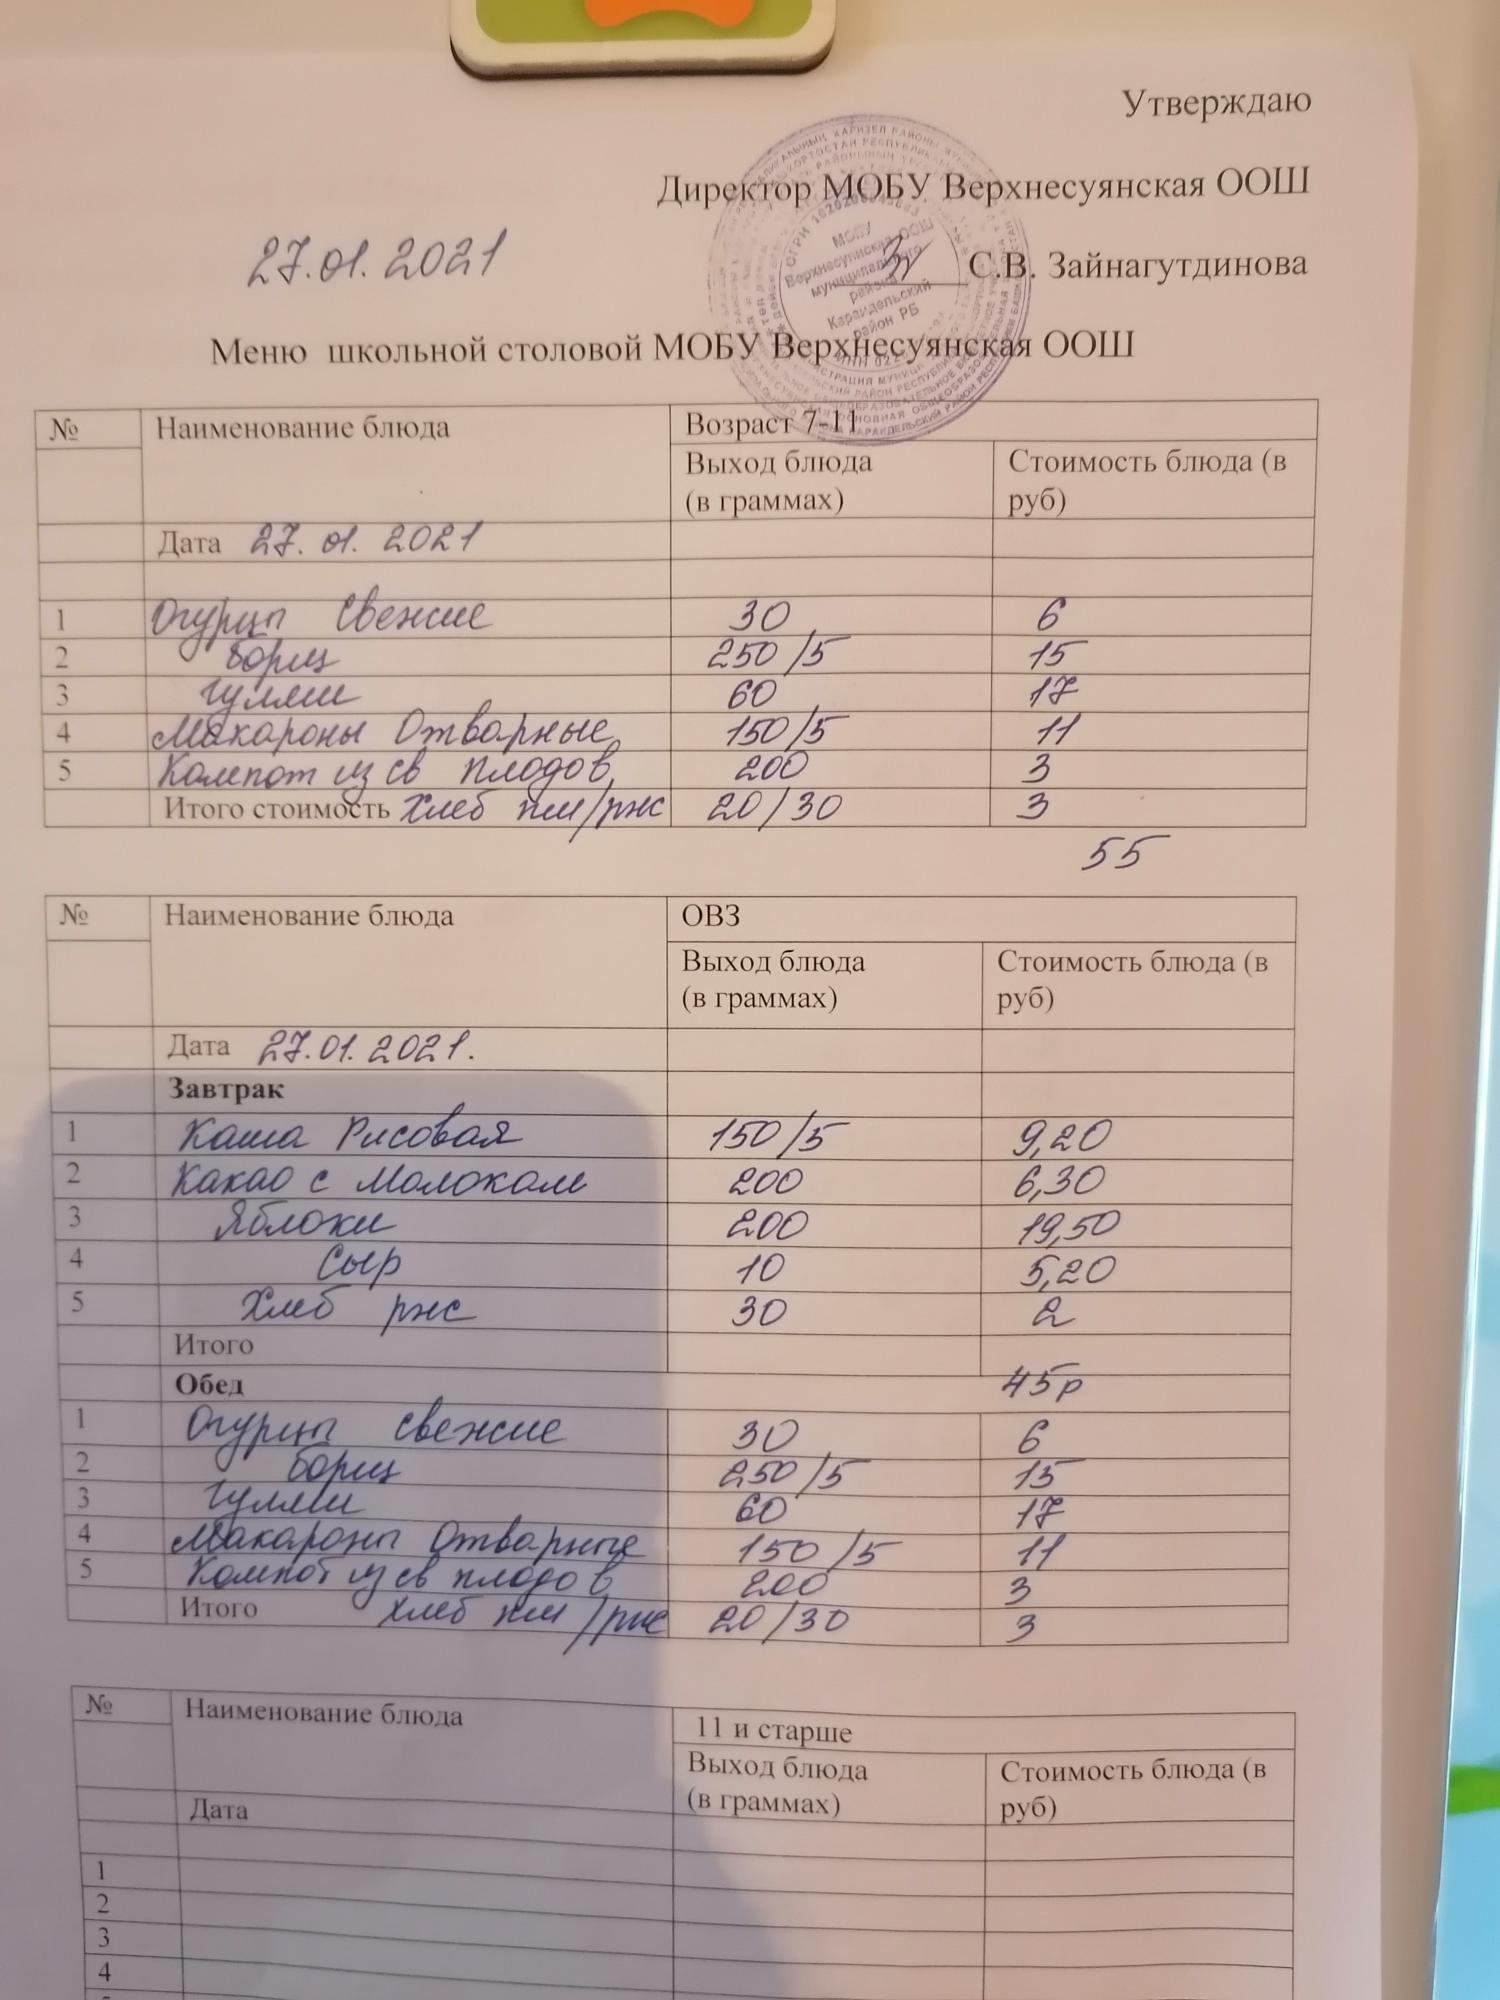 Утверждаю
Директор МОБУ Верхнесуянская ООШ
27.01.2021 С.В. Зайнагутдинова
МОБУ
Верхнесуянская ООШ
муниципального
района
Караидельский
район РБ
Меню школьной столовой МОБУ Верхнесуянская ООШ
№ Наименование блюда Возраст 7-11
Выход блюда (в граммах) Стоимость блюда (в руб)
Дата 27.01.2021
1 Огурцы свежие 30 6
2 борщ 250/5 15
3 гуляш 60 17
4 Макароны Отварные 150/5 11
5 Компот из св плодов 200 3
Итого стоимость Хлеб пш/ржс 20/30 3
55
№ Наименование блюда ОВЗ
Выход блюда (в граммах) Стоимость блюда (в руб)
Дата 27.01.2021.
Завтрак
1 Каша Рисовая 150/5 9,20
2 Какао с Молоком 200 6,30
3 Яблоки 200 19,50
4 Сыр 10 5,20
5 Хлеб ржс 30 2
Итого
Обед 45р
1 Огурцы свежие 30 6
2 борщ 250/5 15
3 гуляш 60 17
4 Макароны Отварные 150/5 11
5 Компот из св плодов 200 3
Итого хлеб пш/ржс 20/30 3
№ Наименование блюда 11 и старше
Выход блюда (в граммах) Стоимость блюда (в руб)
Дата
1
2
3
4